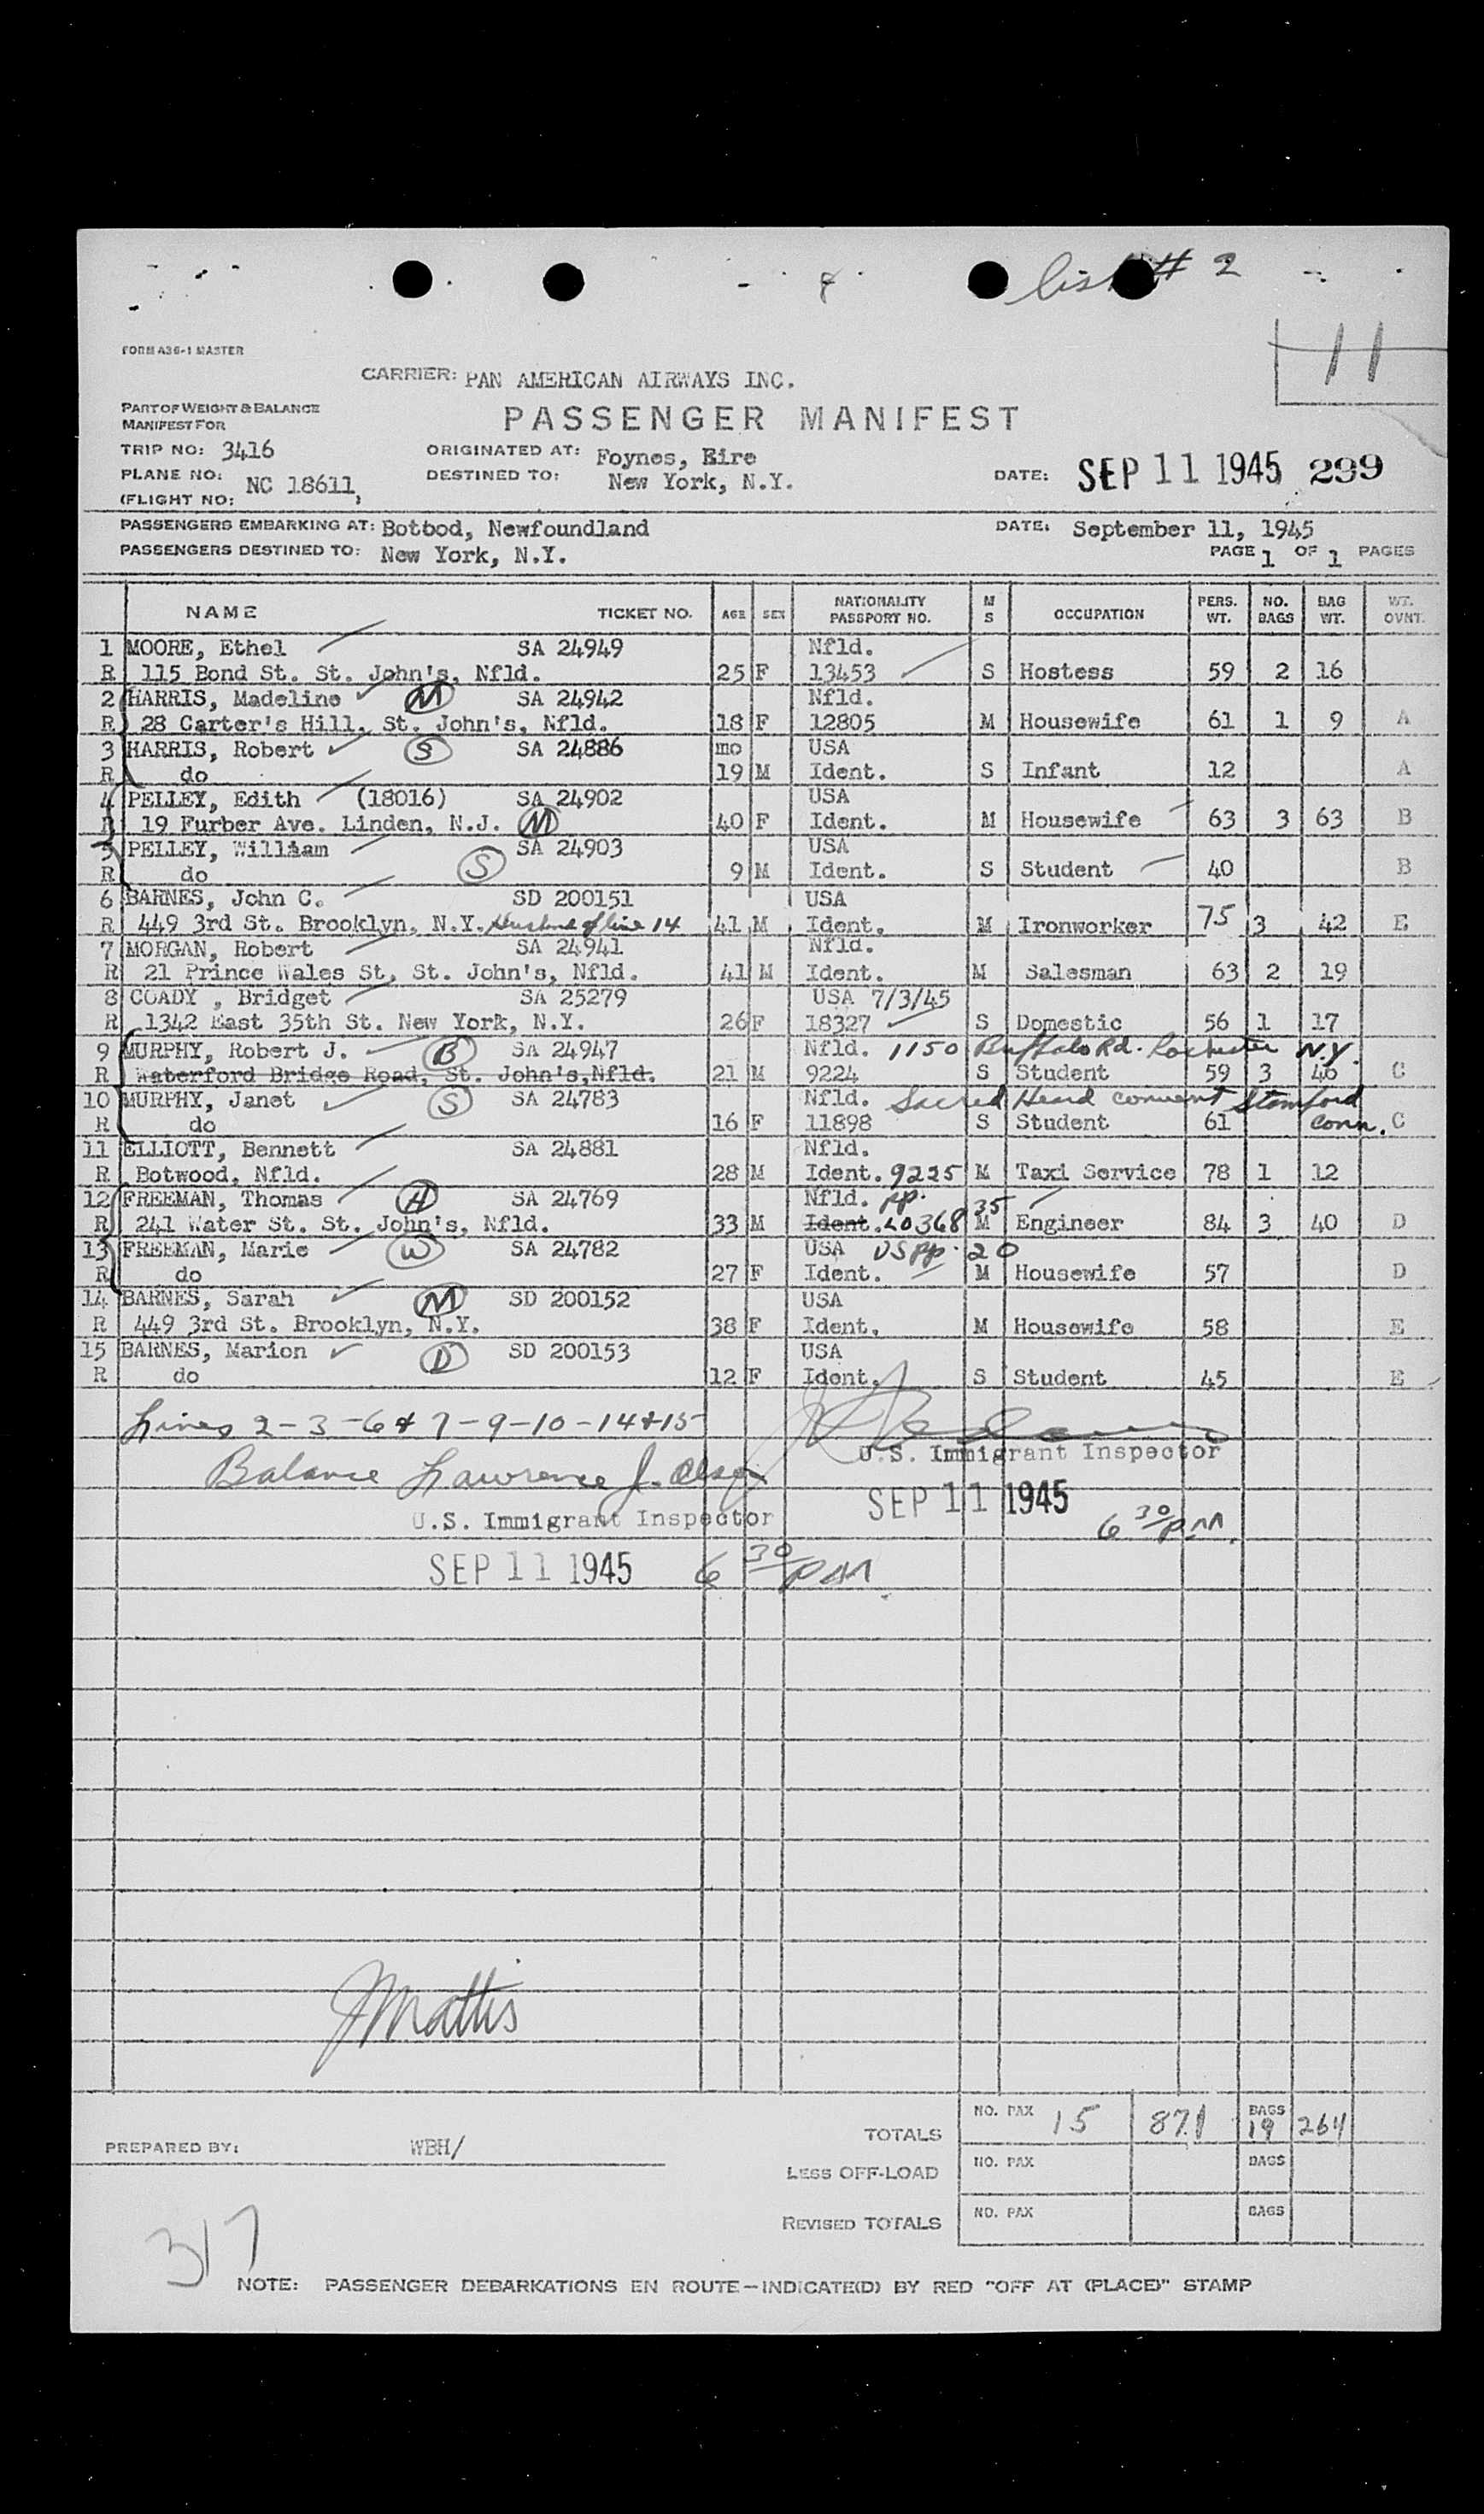 list # 2
11
FORM A36-1 MASTER
CARRIER: PAN AMERICAN AIRWAYS INC.
PART OF WEIGHT & BALANCE
MANIFEST FOR
PASSENGER MANIFEST
TRIP NO: 3416
ORIGINATED AT: Foynes, Eire
PLANE NO: NC 18611
DESTINED TO: New York, N.Y.
DATE: SEP 11 1945 299
(FLIGHT NO: )
PASSENGERS EMBARKING AT: Botbod, Newfoundland DATE: September 11, 1945
PASSENGERS DESTINED TO: New York, N.Y. PAGE 1 OF 1 PAGES
NAME TICKET NO. AGE SEX NATIONALITY PASSPORT NO. M S OCCUPATION PERS. WT. NO. BAGS BAG WT. WT. OVNT.
1 MOORE, Ethel SA 24949 Nfld.
R 115 Bond St. St. John's, Nfld. 25 F 13453 S Hostess 59 2 16
2 HARRIS, Madeline M SA 24942 Nfld.
R 28 Carter's Hill, St. John's, Nfld. 18 F 12805 M Housewife 61 1 9 A
3 HARRIS, Robert S SA 24886 mo USA
R do 19 M Ident. S Infant 12 A
4 PELLEY, Edith (18016) SA 24902 USA
R 19 Furber Ave. Linden, N.J. M 40 F Ident. M Housewife 63 3 63 B
5 PELLEY, William S SA 24903 USA
R do 9 M Ident. S Student 40 B
6 BARNES, John C. SD 200151 USA
R 449 3rd St. Brooklyn, N.Y. Husband of line 14 41 M Ident. M Ironworker 75 3 42 E
7 MORGAN, Robert SA 24941 Nfld.
R 21 Prince Wales St, St. John's, Nfld. 41 M Ident. M Salesman 63 2 19
8 COADY , Bridget SA 25279 USA 7/3/45
R 1342 East 35th St. New York, N.Y. 26 F 18327 S Domestic 56 1 17
9 MURPHY, Robert J. B SA 24947 Nfld. 1150 Buffalo Rd. Rochester N.Y.
R Waterford Bridge Road, St. John's,Nfld. 21 M 9224 S Student 59 3 46 C
10 MURPHY, Janet S SA 24783 Nfld. Sacred Heard convent Stamford
R do 16 F 11898 S Student 61 Conn. C
11 ELLIOTT, Bennett SA 24881 Nfld.
R Botwood, Nfld. 28 M Ident. 9225 M Taxi Service 78 1 12
12 FREEMAN, Thomas H SA 24769 Nfld. pp. 35
R 241 Water St. St. John's, Nfld. 33 M Ident. 20368 M Engineer 84 3 40 D
13 FREEMAN, Marie W SA 24782 USA US pp. 20
R do 27 F Ident. M Housewife 57 D
14 BARNES, Sarah M SD 200152 USA
R 449 3rd St. Brooklyn, N.Y. 38 F Ident. M Housewife 58 E
15 BARNES, Marion D SD 200153 USA
R do 12 F Ident. S Student 45 E
Lines 2-3-6 & 7-9-10-14 & 15
U.S. Immigrant Inspector
Balance Lawrence J. Olsen
SEP 11 1945 6 30 PM
U.S. Immigrant Inspector
SEP 11 1945 6 30 PM
J Mattis
TOTALS NO. PAX 15 871 BAGS 19 264
PREPARED BY: WBH/
LESS OFF-LOAD NO. PAX BAGS
REVISED TOTALS NO. PAX BAGS
317
NOTE: PASSENGER DEBARKATIONS EN ROUTE—INDICATE(D) BY RED "OFF AT (PLACE)" STAMP